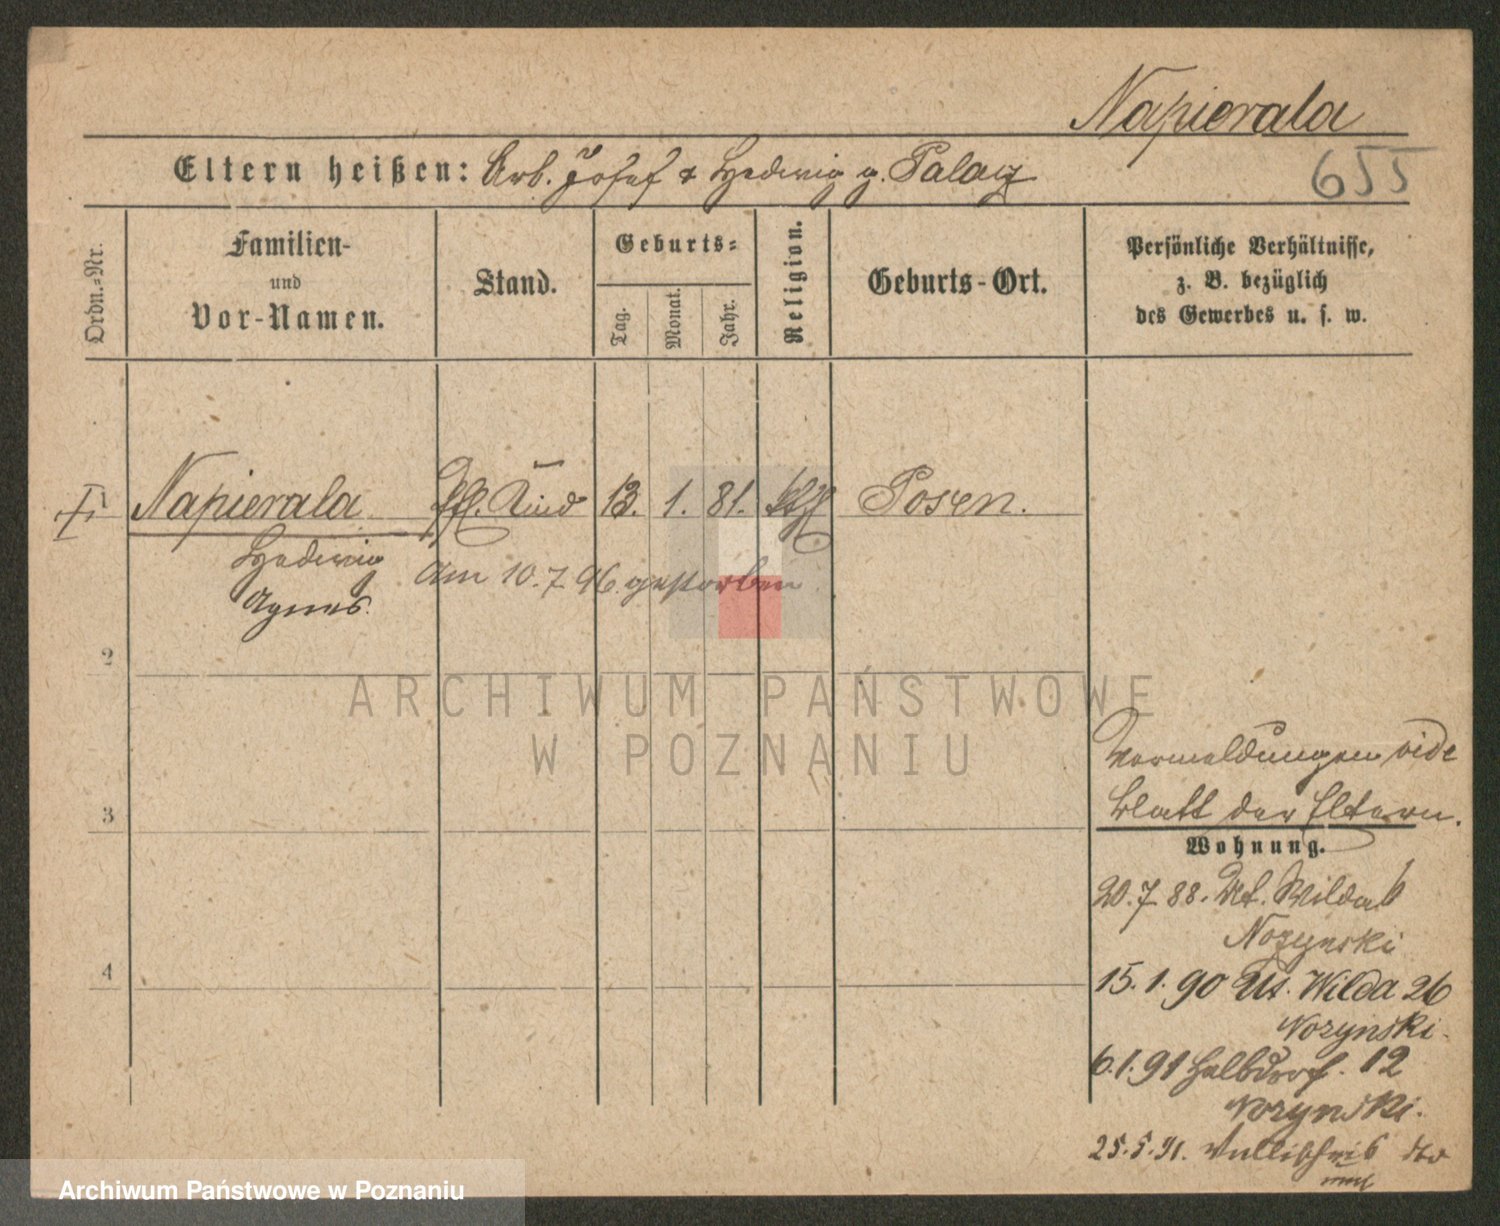 Napierala
655
Eltern heißen: Arb. Josef & Hedwig g. Palacz
Ordn.=Nr.
Familien-
und
Vor-Namen.
Stand.
Geburts=
Tag.
Monat.
Jahr.
Religion.
Geburts-Ort.
Persönliche Verhältnisse,
z. B. bezüglich
des Gewerbes u. s. w.
Napierala Pfl. Kind 13. 1. 81. kth Posen.
Hedwig
Agnes.
Am 10. 7. 96. gestorben
2
3
4
ARCHIWUM PAŃSTWOWE
W POZNANIU
Vermeldungen vide
Blatt der Eltern.
Wohnung.
20. 7. 88. Ut. Wilda 6
Nozynski
15. 1. 90 Ut. Wilda 26
Nozynski.
6. 1. 91 Halbdorf. 12
Nozynski.
25. 5. 91. dto
Archiwum Państwowe w Poznaniu